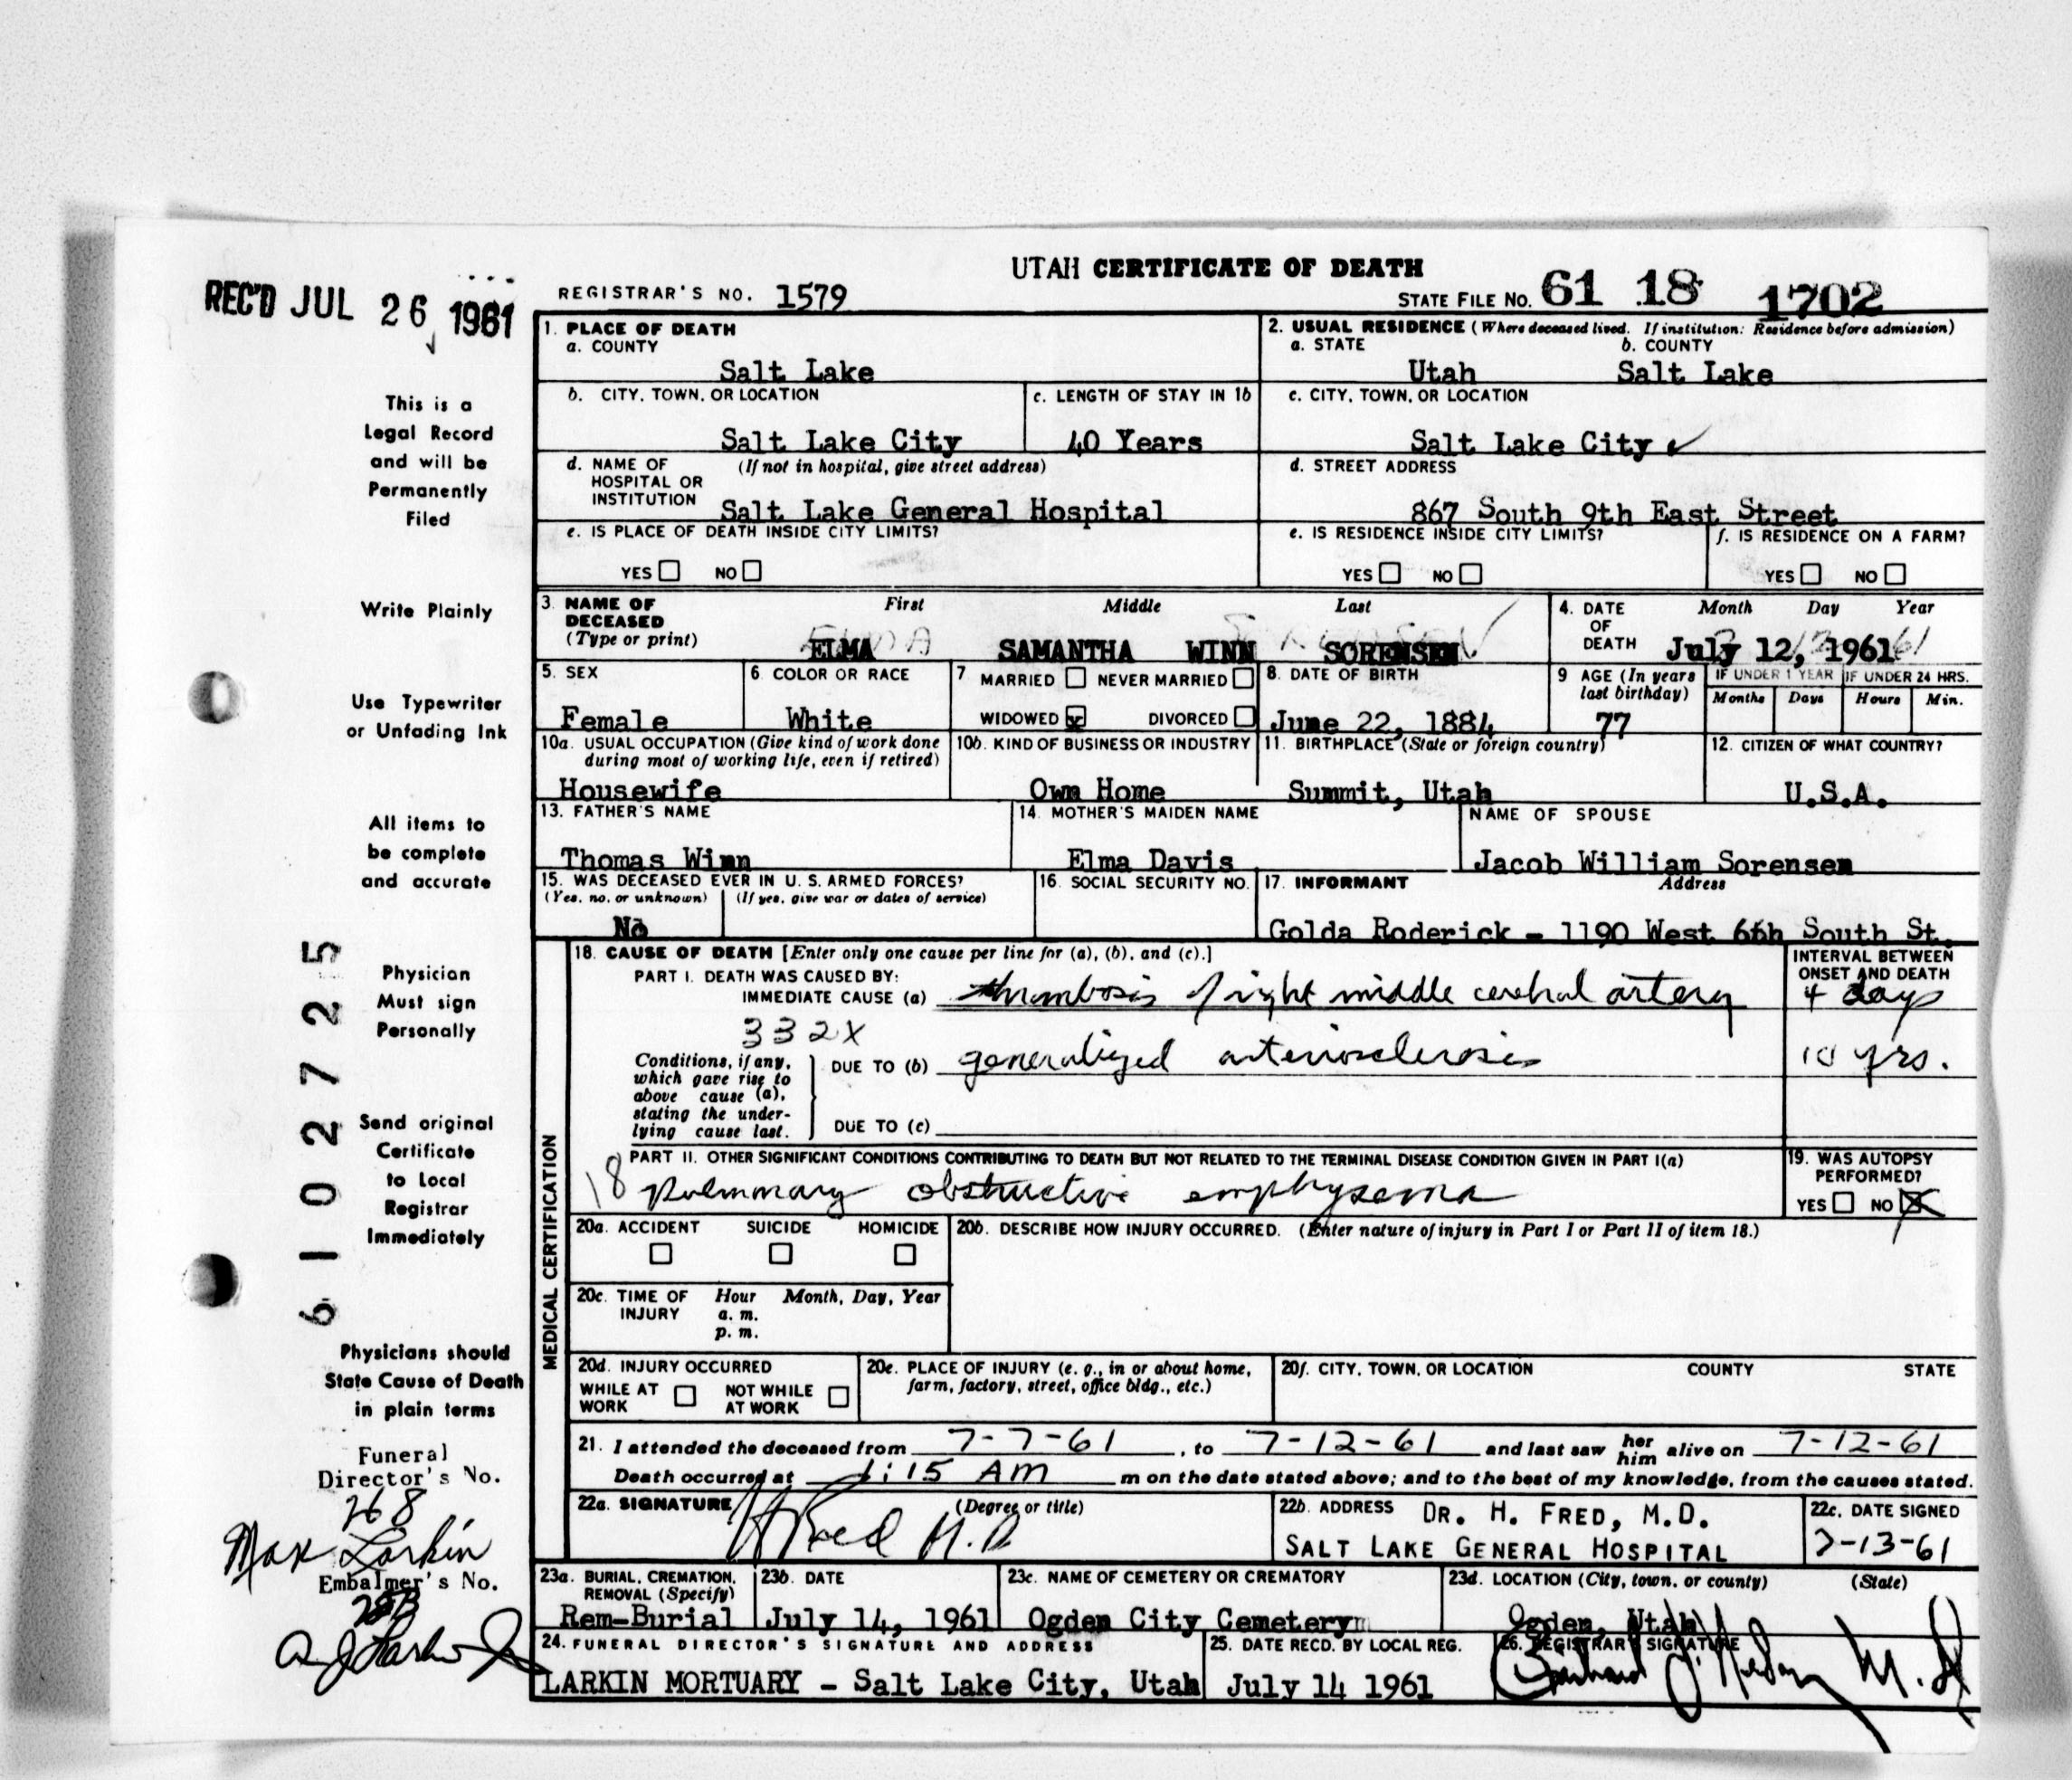 UTAH CERTIFICATE OF DEATH
REC'D JUL 26 1961
REGISTRAR'S NO. 1579
STATE FILE NO. 61 18 1702
1. PLACE OF DEATH
a. COUNTY
Salt Lake
2. USUAL RESIDENCE (Where deceased lived. If institution: Residence before admission)
a. STATE b. COUNTY
Utah Salt Lake
b. CITY, TOWN, OR LOCATION
Salt Lake City
c. LENGTH OF STAY IN 1b
40 Years
c. CITY, TOWN, OR LOCATION
Salt Lake City
d. NAME OF HOSPITAL OR INSTITUTION
(If not in hospital, give street address)
Salt Lake General Hospital
d. STREET ADDRESS
867 South 9th East Street
e. IS PLACE OF DEATH INSIDE CITY LIMITS?
YES NO
e. IS RESIDENCE INSIDE CITY LIMITS?
YES NO
f. IS RESIDENCE ON A FARM?
YES NO
3. NAME OF DECEASED
(Type or print)
First Middle Last
ELMA SAMANTHA WINN SORENSEN
4. DATE OF DEATH
Month Day Year
July 12, 1961
5. SEX
Female
6. COLOR OR RACE
White
7 MARRIED NEVER MARRIED
WIDOWED x DIVORCED
8. DATE OF BIRTH
June 22, 1884
9 AGE (In years last birthday)
77
IF UNDER 1 YEAR IF UNDER 24 HRS.
Months Days Hours Min.
10a. USUAL OCCUPATION (Give kind of work done
during most of working life, even if retired)
Housewife
10b. KIND OF BUSINESS OR INDUSTRY
Own Home
11. BIRTHPLACE (State or foreign country)
Summit, Utah
12. CITIZEN OF WHAT COUNTRY?
U.S.A.
13. FATHER'S NAME
Thomas Winn
14. MOTHER'S MAIDEN NAME
Elma Davis
NAME OF SPOUSE
Jacob William Sorensen
15. WAS DECEASED EVER IN U. S. ARMED FORCES?
(Yes, no, or unknown) (If yes, give war or dates of service)
No
16. SOCIAL SECURITY NO.
17. INFORMANT Address
Golda Roderick - 1190 West 6th South St.
MEDICAL CERTIFICATION
18. CAUSE OF DEATH [Enter only one cause per line for (a), (b), and (c).]
PART I. DEATH WAS CAUSED BY:
IMMEDIATE CAUSE (a) thrombosis of right middle cerebral artery
INTERVAL BETWEEN ONSET AND DEATH
4 days
332X
Conditions, if any, which gave rise to above cause (a), stating the underlying cause last.
DUE TO (b) generalized arteriosclerosis
10 yrs.
DUE TO (c)
PART II. OTHER SIGNIFICANT CONDITIONS CONTRIBUTING TO DEATH BUT NOT RELATED TO THE TERMINAL DISEASE CONDITION GIVEN IN PART I(a)
18 pulmonary obstructive emphysema
19. WAS AUTOPSY PERFORMED?
YES NO X
20a. ACCIDENT SUICIDE HOMICIDE
20b. DESCRIBE HOW INJURY OCCURRED. (Enter nature of injury in Part I or Part II of item 18.)
20c. TIME OF INJURY
Hour Month, Day, Year
a. m.
p. m.
20d. INJURY OCCURRED
WHILE AT WORK NOT WHILE AT WORK
20e. PLACE OF INJURY (e. g., in or about home,
farm, factory, street, office bldg., etc.)
20f. CITY, TOWN, OR LOCATION COUNTY STATE
21. I attended the deceased from 7-7-61, to 7-12-61 and last saw her him alive on 7-12-61
Death occurred at 1:15 AM m on the date stated above; and to the best of my knowledge, from the causes stated.
22a. SIGNATURE (Degree or title)
H Fred M.D
22b. ADDRESS DR. H. FRED, M.D.
SALT LAKE GENERAL HOSPITAL
22c. DATE SIGNED
7-13-61
23a. BURIAL, CREMATION, REMOVAL (Specify)
Rem-Burial
23b. DATE
July 14, 1961
23c. NAME OF CEMETERY OR CREMATORY
Ogden City Cemetery
23d. LOCATION (City, town, or county) (State)
Ogden, Utah
24. FUNERAL DIRECTOR'S SIGNATURE AND ADDRESS
LARKIN MORTUARY - Salt Lake City, Utah
25. DATE RECD. BY LOCAL REG.
July 14 1961
26. REGISTRAR'S SIGNATURE
M.D
This is a
Legal Record
and will be
Permanently
Filed
Write Plainly
Use Typewriter
or Unfading Ink
All items to
be complete
and accurate
Physician
Must sign
Personally
Send original
Certificate
to Local
Registrar
Immediately
Physicians should
State Cause of Death
in plain terms
61 02725
Funeral
Director's No.
268
Max Larkin
Embalmer's No.